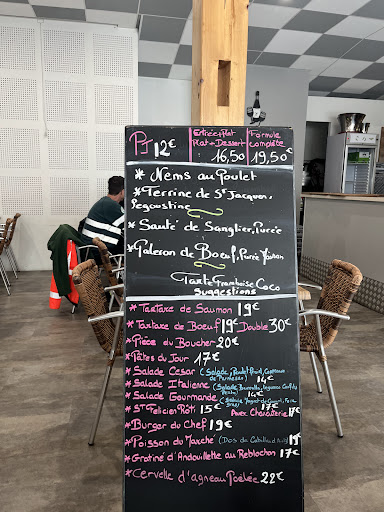 PJ 12€
Entrée + Plat
Plat + Dessert
16,50
Formule
complète
19,50€
* Nems au Poulet
* Terrine de St Jacques,
Langoustine
* Sauté de Sanglier, Purée
* Paleron de Boeuf, Purée Maison
Tarte Framboise Coco
Suggestions
* Tartare de Saumon 19€
* Tartare de Boeuf 19€ Double 30€
* Pièce du Boucher 20€
* Pâtes du Jour 17€
* Salade César (Salade, Poulet froid, Copeaux
de Parmesan) 14€
* Salade Italienne
14€
* Salade Gourmande
17€
* St Félicien Rôti 15€ Avec Charcuterie 17€
* Burger du Chef 19€
* Poisson du Marché (Dos de Cabillaud)
* Gratiné d'Andouillette au Reblochon 17€
* Cervelle d'agneau Poêlée 22€